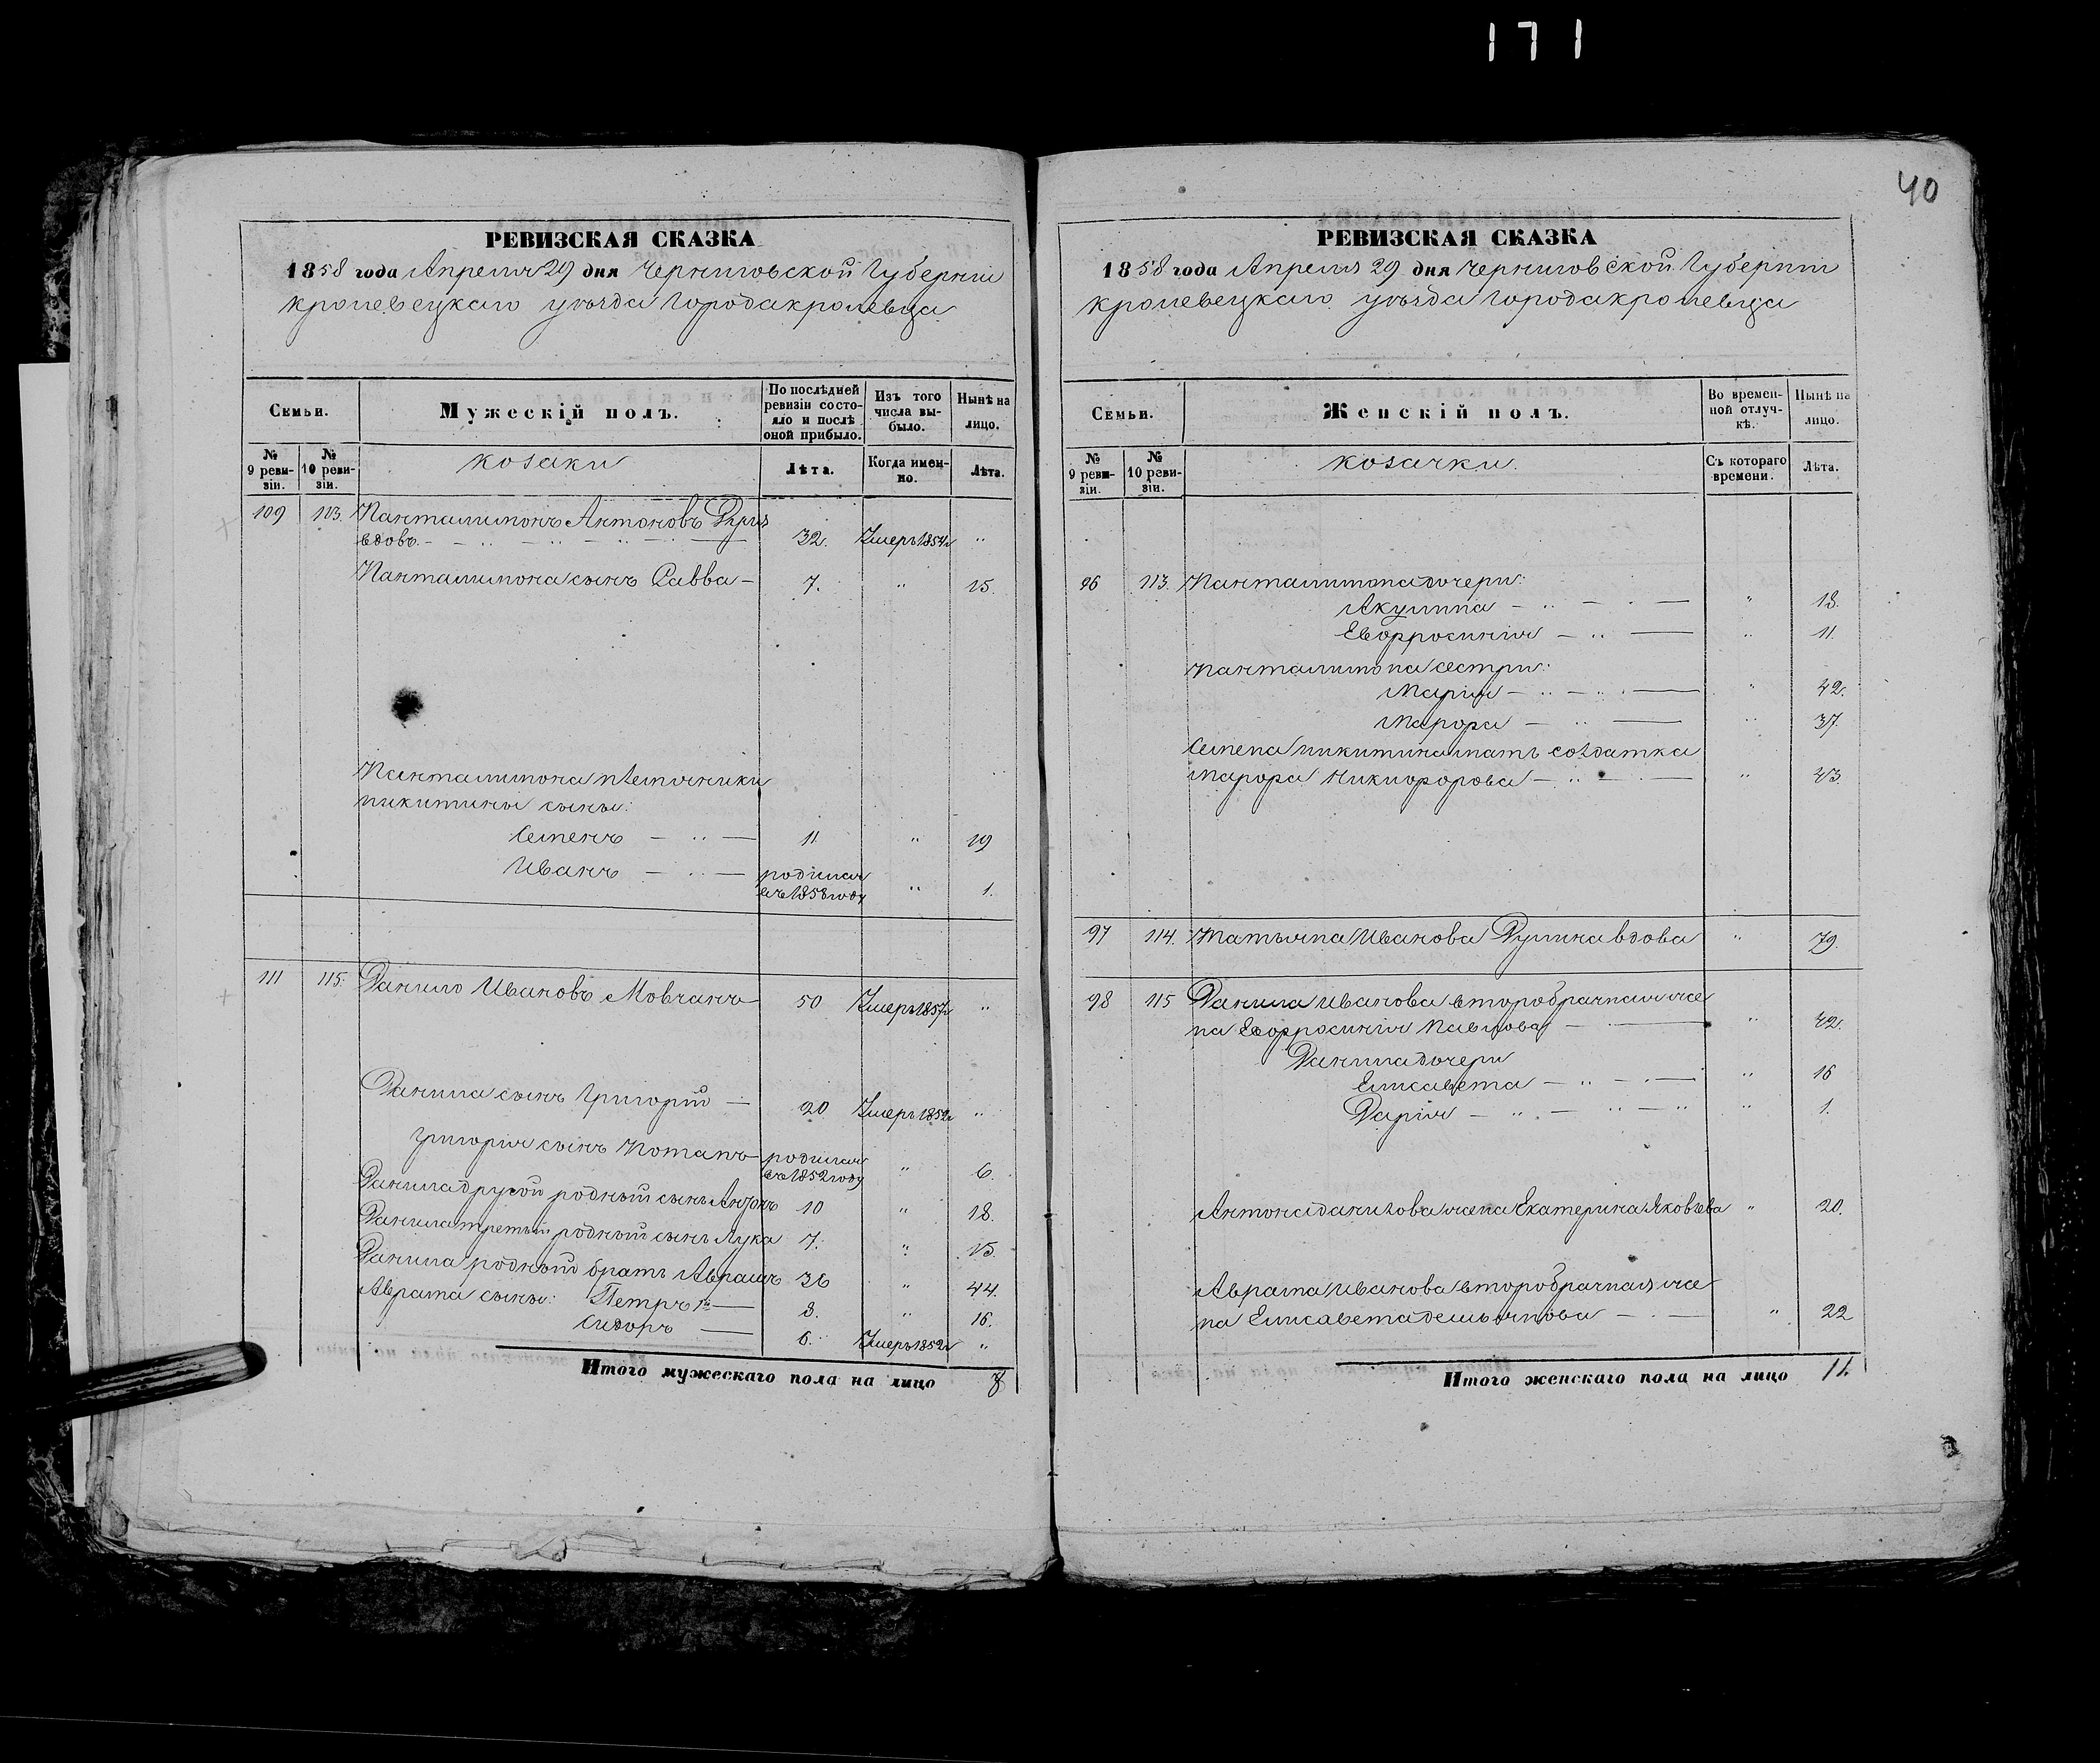 171
40
РЕВИЗСКАЯ СКАЗКА
1858 года Апреля 29 дня Черниговской Губерніи
Кролевецкаго уѣзда Города Кролевца
Семьи.
Мужескій полъ.
По послѣдней ревизіи состояло и послѣ оной прибыло.
Изъ того числа выбыло.
Нынѣ на лицо.
№ 9 ревизіи.
№ 10 ревизіи.
козаки
Лѣта.
Когда именно.
Лѣта.
109 113. Панталимонъ Антоновъ
вдовъ. 32. Умеръ 1854 г "
Панталимона сынъ Савва 7. " 15.
Панталимона племянники
никитины сыны:
Семенъ 11 " 19
Иванъ родился
въ 1858 году " 1.
111 115. Данило Ивановъ Мовчанъ 50 Умеръ 1857 г "
Данила сынъ Григорій 20 Умеръ 1852 г "
Григорія сынъ Потапъ родился
въ 1852 году " 6.
Данила другой родный сынъ Антонъ 10 " 18.
Данила третій родный сынъ Лука 7. " 15.
Данила родный братъ Аврамъ 36 " 44.
Аврама сыны: Петръ 1й 8. " 16.
Сидоръ 6. Умеръ 1852 г "
Итого мужескаго пола на лицо 8
РЕВИЗСКАЯ СКАЗКА
1858 года Апреля 29 дня Черниговской Губерніи
Кролевецкаго уѣзда Города Кролевца
Семьи.
Женскій полъ.
Во временной отлучкѣ.
Нынѣ на лицо.
№ 9 ревизіи.
№ 10 ревизіи.
козачки.
Съ котораго времени.
Лѣта.
96 113. Панталимона дочери:
Акулина " 18.
Евфросинія " 11.
Панталимона сестры:
Марія " 42.
Марфа " 37.
Семена Никитина мать солдатка
Марфа Никифорова " 43.
97 114. Татьяна Иванова вдова " 79.
98 115 Данила Иванова второбрачная же
на Евфросинія Павлова " 42.
Данила дочери
Елисавета " 16
Дарія " 1.
Антона Данилова жена Екатерина Яковлева " 20.
Аврама Иванова второбрачная же
на Елисавета Демьянова " 22
Итого женскаго пола на лицо 11.